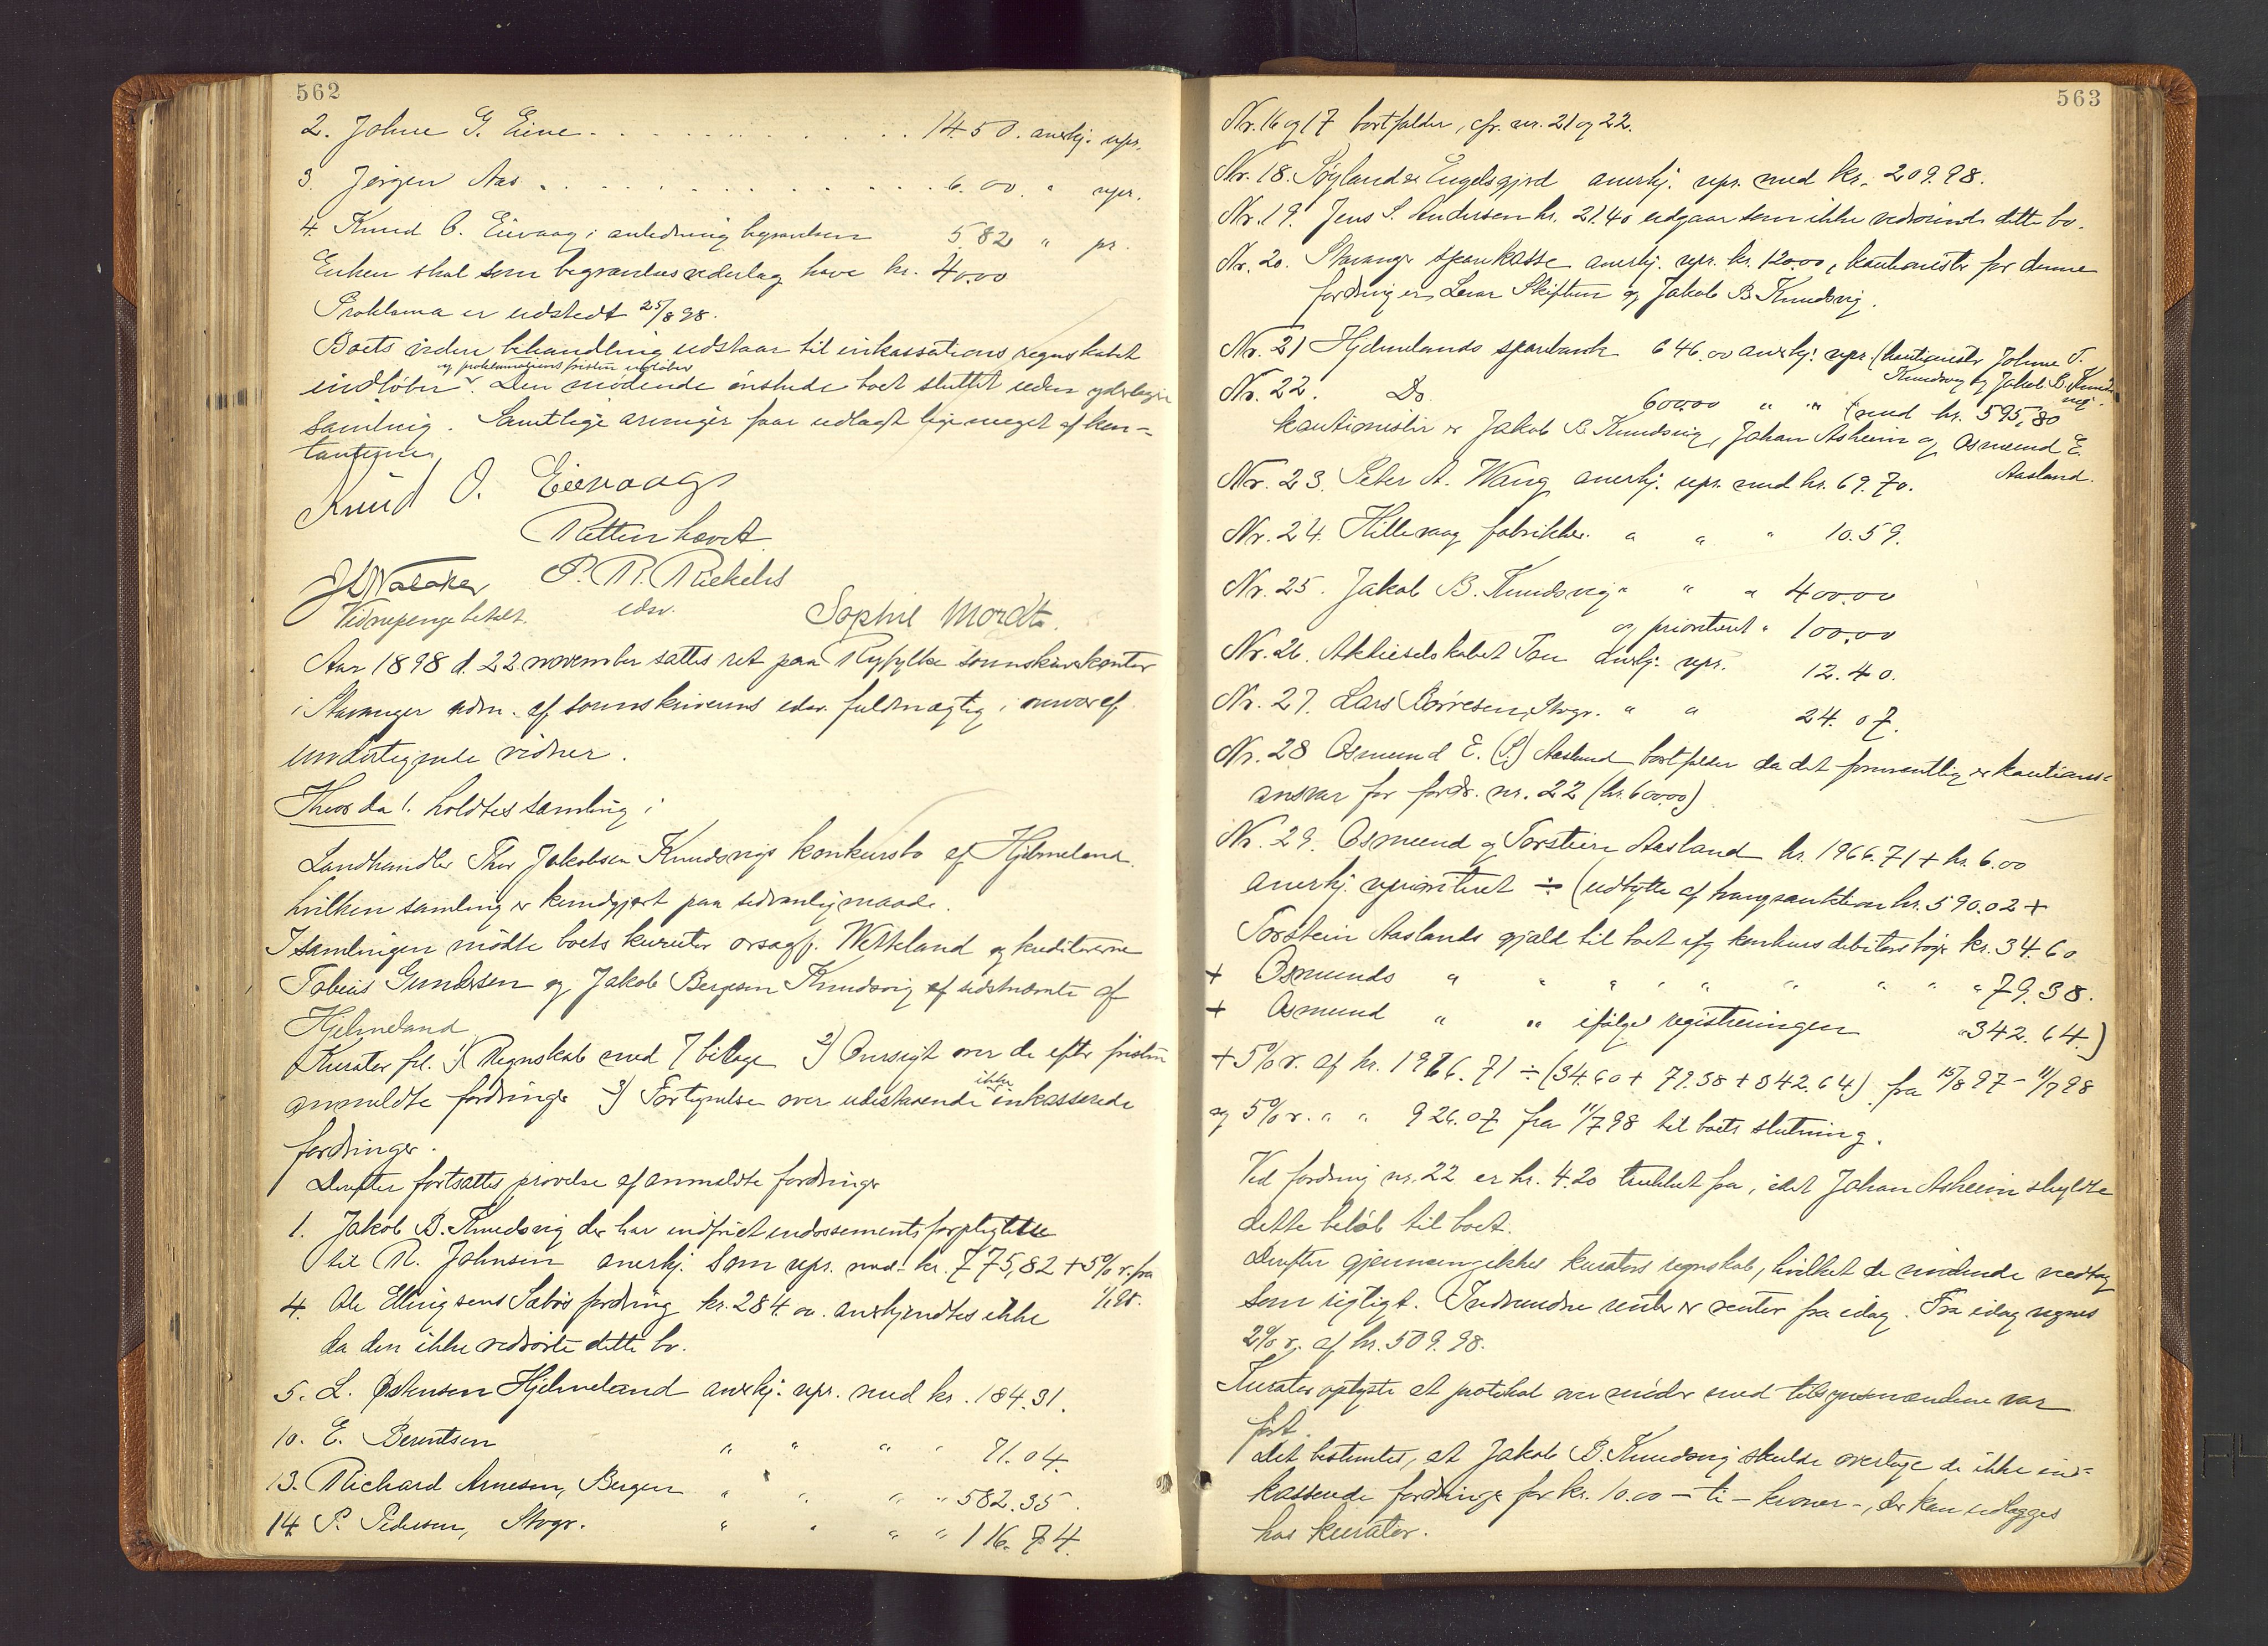 562
2. Johne G. Eine . . . . . . . . . 14.50. anerkj. upr.
3. Jørgen Aas . . . . . . . . . . . 6.00. " upr.
4. Knud O. Eievaag i anledning begravelsen 5.82 " pr.
Enken skal som begravelsesvederlag have kr. 40.00
Proklama er udstedt 25/8 98.
Boets videre behandling udstaar til inkassationsregnskabet
og proklamationsfristen udløber
indløber. Den mødende ønskede boet sluttet uden yderligere
samling. Samtlige arvinger faar udlagt lige meget af kon-
tanterne.
Knud O. Eievaag
Retten hævet
P. R. Rickels
edsv.
Vidnepenge betalt.
Sophie Mordt.
Aar 1898 d. 22 november sattes ret paa Ryfylke sorenskriverkontor
i Stavanger adm. af sorenskriverens edsv. fuldmægtig i overvær af
undertegnede vidner.
Hvor da 1. holdtes samling i
Landhandler Thor Jakobsen Knudsvigs konkursbo af Hjelmeland
hvilken samling er kundgjort paa sedvanlig maade.
I samlingen mødte boets kurator orsagf. Wetteland og kreditorerne
Tobias Gundersen og Jakob Bergesen Knudsvig af sidstnævnte af
Hjelmeland
Kurator frl. 1) Regnskab med 7 bilage 2) Oversigt over de efter fristen
anmeldte fordringer 3) Fortegnelse over udestaaende ikke inkasserede
fordringer.
Derefter fortsattes prøvelse af anmeldte fordringer
1. Jakob B. Knudsvig der har indfriet endossementsforpligtelse
til R. Johnsen anerkj. som upr. med kr. 775,82 + 5% r. fra
4. Ole Ellingsens Sabøs fordring kr. 284.00. anerkjendtes ikke
da den ikke vedrørte dette bo.
5. L. Østensen Hjelmeland anerkj. upr. med kr. 184.31.
10. E. Berentsen " " " " 71.04.
13. Richard Arnesen, Bergen " " " " 582.35.
14. P. Pedersen, Stvgr. " " " " 116.74.
563
Nr. 16 og 17 bortfalder, cfr. nr. 21 og 22.
Nr. 18. Røyland & Engelsgjerd anerkj. upr. med kr. 209.98.
Nr. 19. Jens S. Andersen kr. 21.40 udgaar som ikke vedrørende dette bo.
Nr. 20. Stavanger sparekasse anerkj. upr. kr. 120.00, kautionister for denne
fordring er Skiftun og Jakob B. Knudsvig.
Nr. 21 Hjelmelands sparebank 646.00 anerkj. upr. (kautionister Johne T.
Knudsvig og Jakob B. Knuds-
vig.
Nr. 22. Do 600.00 " " (med kr. 595,80
kautionister er Jakob B. Knudsvig, Johan Asheim og Osmund E.
Aasland.
Nr. 23. Peter A. Wang anerkj. upr. med kr. 69.70.
Nr. 24. Hillevaag fabrikker " " " 10.59.
Nr. 25. Jakob B. Knudsvig " " " 400.00
og prioriteret " 100.00
Nr. 26. Aktieselskabet Tou anerkj. upr. 12.40.
Nr. 27. Lars Børresen, Stvgr. " " 24.07.
Nr. 28 Osmund E. (S.) Aasland bortfalder da det formentlig er kautions-
ansvar for fordr. nr. 22 (kr. 600.00)
Nr. 29. Osmund og Torstein Aasland kr. 1966.71 + kr. 6.00
anerkj. uprioriteret ÷ (udbytte af tvangsauktion kr. 590.02 +
Torstein Aaslands gjæld til boet ifg konkursdebitors bøger kr. 34.60
+ Osmunds " " " " " " " " " 79.38.
+ Osmund " " ifølge registreringen " 342.64.)
+ 5% r. af kr. 1966.71 ÷ (34.60 + 79.38 + 342.64) fra 15/8 97 - 11/7 98
og 5% r. " " 926.07 fra 11/7 98 til boets slutning.
Ved fordring nr. 22 er kr. 4.20 trukket fra, idet Johan Asheim skyldte
dette beløb til boet.
Derefter gjennemgikkes kurators regnskab, hvilket de mødende vedtog
som rigtigt. Indvundne renter er renter fra idag. Fra idag regnes
2% r. af kr. 509.98.
Kurator oplyste at protokol over møder med tilsynsmændene var
ført.
Det bestemtes, at Jakob B. Knudsvig skulde overtage de ikke in-
kasserede fordringer for kr. 10.00 - ti - kroner -, der kan udlægges
hos kurator.